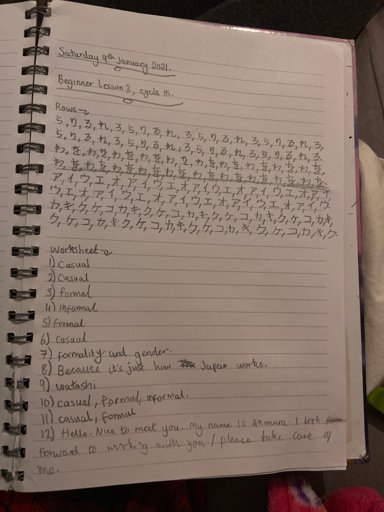 Saturday 9th January 2021.
Beginner Lesson 3, cycle 15.
Rows
ら, り, る, れ, ろ, ら, り, る, れ, ろ, ら, り, る, れ, ろ, ら, り, る, れ, ろ,
ら, り, る, れ, ろ, ら, り, る, れ, ろ, ら, り, る, れ, ろ, ら, り, る, れ, ろ.
わ, を, わ, を, わ, を, わ, を, わ, を, わ, を, わ, を, わ, を, わ, を,
わ, を, わ, を, わ, を, わ, を, わ, を, わ, を, わ, を, わ, を, わ, を
ア, イ, ウ, エ, オ, ア, イ, ウ, エ, オ, ア, イ, ウ, エ, オ, ア, イ,
ウ, エ, オ, ア, イ, ウ, エ, オ, ア, イ, ウ, エ, オ, ア, イ, ウ
カ, キ, ク, ケ, コ, カ, キ, ク, ケ, コ, カ, キ, ク, ケ, コ, カ, キ,
ク, ケ, コ, カ, キ, ク, ケ, コ, カ, キ, ク, ケ, コ, カ, キ, ク
Worksheet
1) Casual
2) Casual
3) formal
4) Informal
5) Formal
6) Casual
7) formality and gender.
8) Because it's just how Japan works.
9) watashi
10) casual, formal, informal.
11) casual, formal
12) Hello. Nice to meet you. My name is Akimura. I look
forward to working with you / please take care of
me.